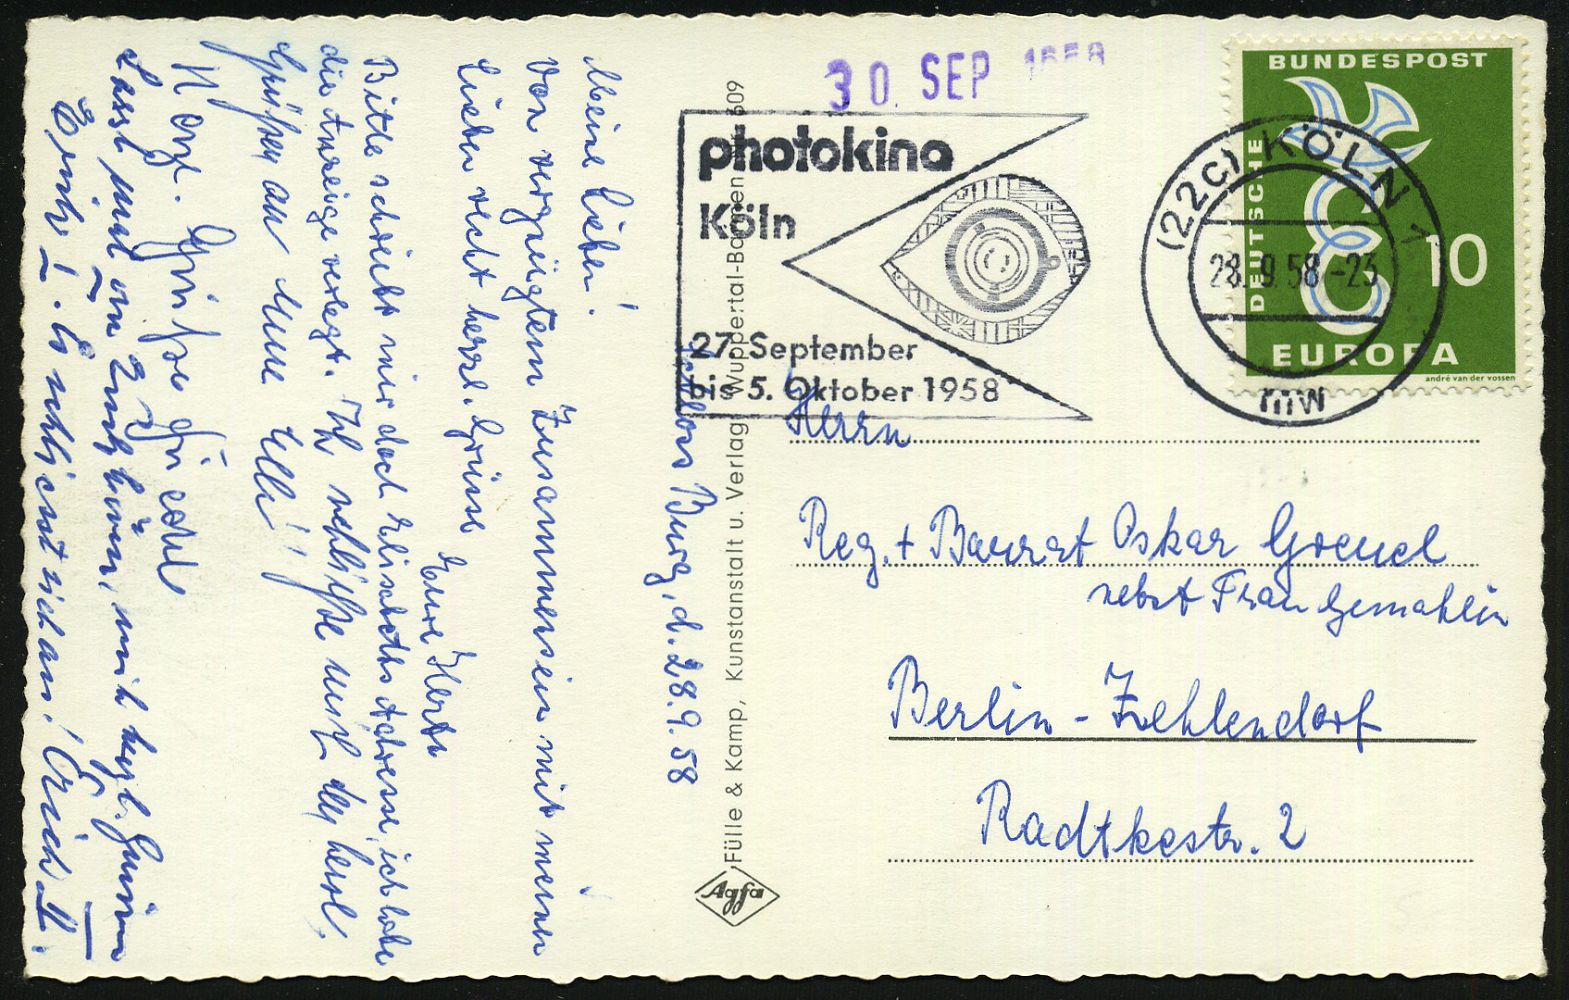 30 SEP 1958
photokina
Köln
27. September
bis 5. Oktober 1958
(22c) KÖLN 1
28.9.58-23
mw
BUNDESPOST
DEUTSCHE
10
EUROPA
andré van der vossen
Herrn
Reg. + Baurat Oskar Greuel
nebst Frau Gemahlin
Berlin - Zehlendorf
Radtkestr. 2
Fülle & Kamp, Kunstanstalt u. Verlag, Wuppertal-Barmen 609
Agfa
Schloss Burg, d. 28.9.58
Meine Lieben!
Von vergnügtem Zusammensein mit meinen
Lieben recht herzl. Grüsse
Eure Herta
Bitte schreibt mir doch Elisabeths Adresse, ich habe
die Anzeige verlegt. Ich schließe mich den herzl.
Grüßen an Eure Elli!
Herzl. Grüße
Lasst mal von Euch hören, mit herzl.
schliesst sich an! Erich